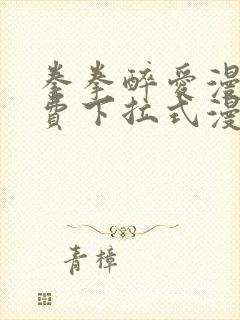 拳拳醉爱漫
费下拉式漫
青樟